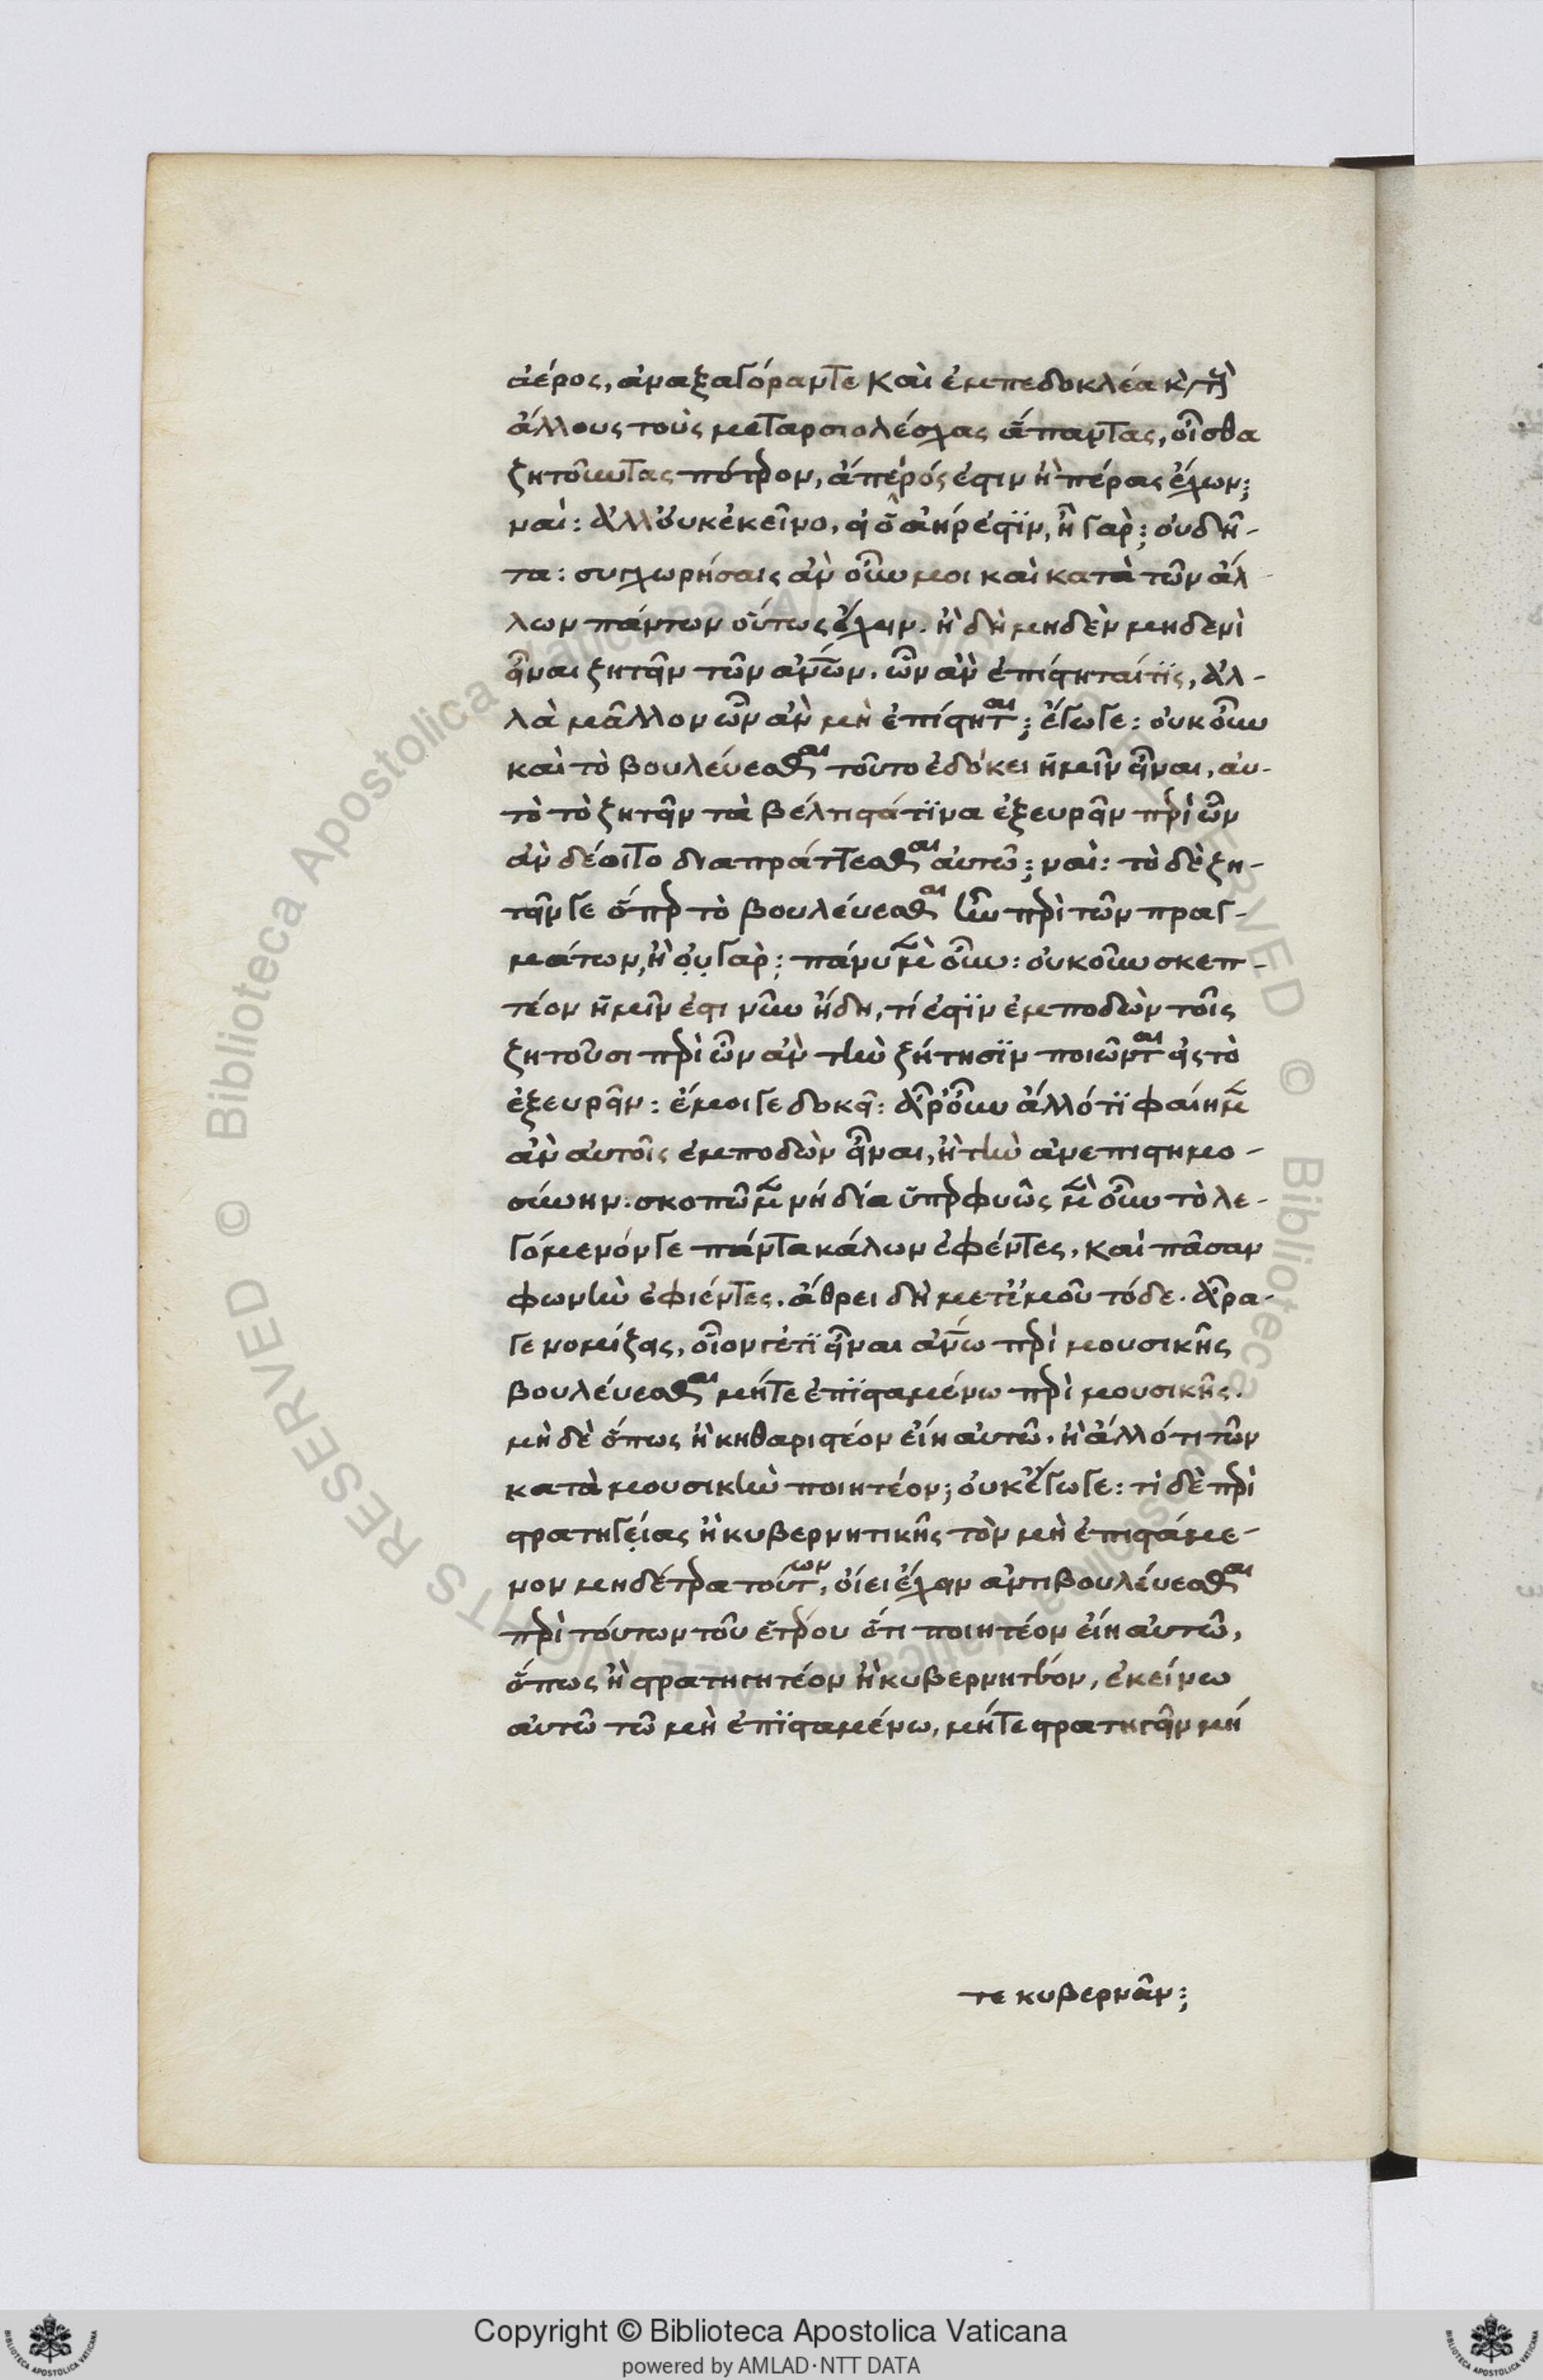 ἀέρος, ἀναξαγόραν τε καὶ ἐμπεδοκλέα κ̀ τοὺς
ἄλλους τοὺς μεταρσιολέσχας ἅπαντας, οἶσθα
ζητοῦντας πότερον, ἄπειρός ἐστιν ἢ πέρας ἔχων;
ναὶ: ἀλλ' οὐκ ἐκεῖνο, εἰ ὁ ἀήρ ἐστϊν, ἦ γαρ; οὐ δῆ-
τα: συγχωρήσαις ἂν οὖν μοι καὶ κατὰ τῶν ἄλ
λων πάντων οὕτως ἔχειν. ἢ δὴ μηδὲν μηδενὶ
εἶναι ζητεῖν τῶν ἀνων. ὧν ἂν ἐπίστηταί τϊς, ἀλ-
λὰ μᾶλλον ὧν ἂν μὴ ἐπίστηται; ἔγωγε: οὐκ οὖν
καὶ τὸ βουλεύεσθαι τοῦτο ἐδόκει ἡμῖν εἶναι, αὐ-
τὸ τὸ ζητεῖν τὰ βέλτιστά τϊνα ἐξευρεῖν περὶ ὧν
ἂν δέοιτο διαπράττεσθαι αὐτῶ; ναὶ: τὸ δὲ ζη-
τεῖν γε ὅπερ τὸ βουλεύεσθαι ἦν περὶ τῶν πραγ-
μάτων, ἢ οὐ γαρ; πάνυ μὲν οὖν: οὐκοῦν σκεπ-
τέον ἡμῖν ἐστι νῦν ἤδη, τί ἐστϊν ἐμποδὼν τοῖς
ζητοῦσι περὶ ὧν ἂν τὴν ζήτησϊν ποιῶνται εἰς τὸ
ἐξευρεῖν: ἔμοιγε δοκεῖ: ἆρ' οὖν ἄλλό τϊ φαίημεν
ἂν αὐτοῖς ἐμποδὼν εἶναι, ἢ τὴν ἀνεπιστημο-
σύνην. σκοπῶμεν νὴ δία ὑπερφυῶς μὲν οὖν τὸ λε-
γόμενόν γε πάντα κάλων ἐφέντες, καὶ πᾶσαν
φωνὴν ἐφιέντες. ἄθρει δὴ μετ' ἐμοῦ τόδε. ἆρα-
γε νομίζεις, οἷον γέ τϊ εἶναι ἀνω περὶ μουσικῆς
βουλεύεσθαι μήτε ἐπϊσταμένω περὶ μουσικῆς.
μὴ δὲ ὅπως ἢ κηθαριστέον εἴη αὐτῶ. ἢ ἄλλό τι τῶν
κατὰ μουσικὴν ποιητέον; οὐκ ἔγωγε: τὶ δὲ περὶ
στρατηγείας ἢ κυβερνητικῆς τὸν μὴ ἐπιστάμε-
νον μηδέτερα τούτων, οἴει ἔχειν ἀντιβουλεύεσθαι
περὶ τούτων τοῦ ἑτέρου ὅτι ποιητέον εἴη αὐτῶ,
ὅπως ἢ στρατηγητέον ἢ κυβερνητέον, ἐκείνω
αὐτῶ τῶ μὴ ἐπϊσταμένω, μήτε στρατηγεῖν μή
τε κυβερνᾶν;
© Biblioteca Apostolica Vaticana ALL RIGHTS RESERVED © Biblioteca Apostolica Vaticana ALL RIGHTS RESERVED
Copyright © Biblioteca Apostolica Vaticana
powered by AMLAD·NTT DATA